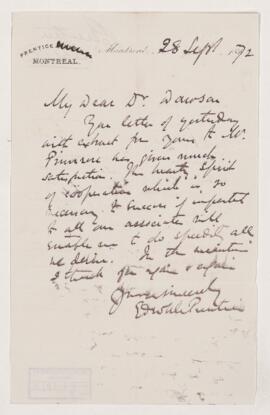 PRENTICE
MONTREAL.
Montreal, 28 Sept 1892
My Dear Dr. Dawson
Your letter of yesterday
with extract from yours to Mr
Primrose has given much
satisfaction. The hearty spirit
of cooperation which is so
necessary to success if imparted
to all our associates will
enable us to do speedily all
we desire. In the meantime
I thank you again & again
Yours sincerely